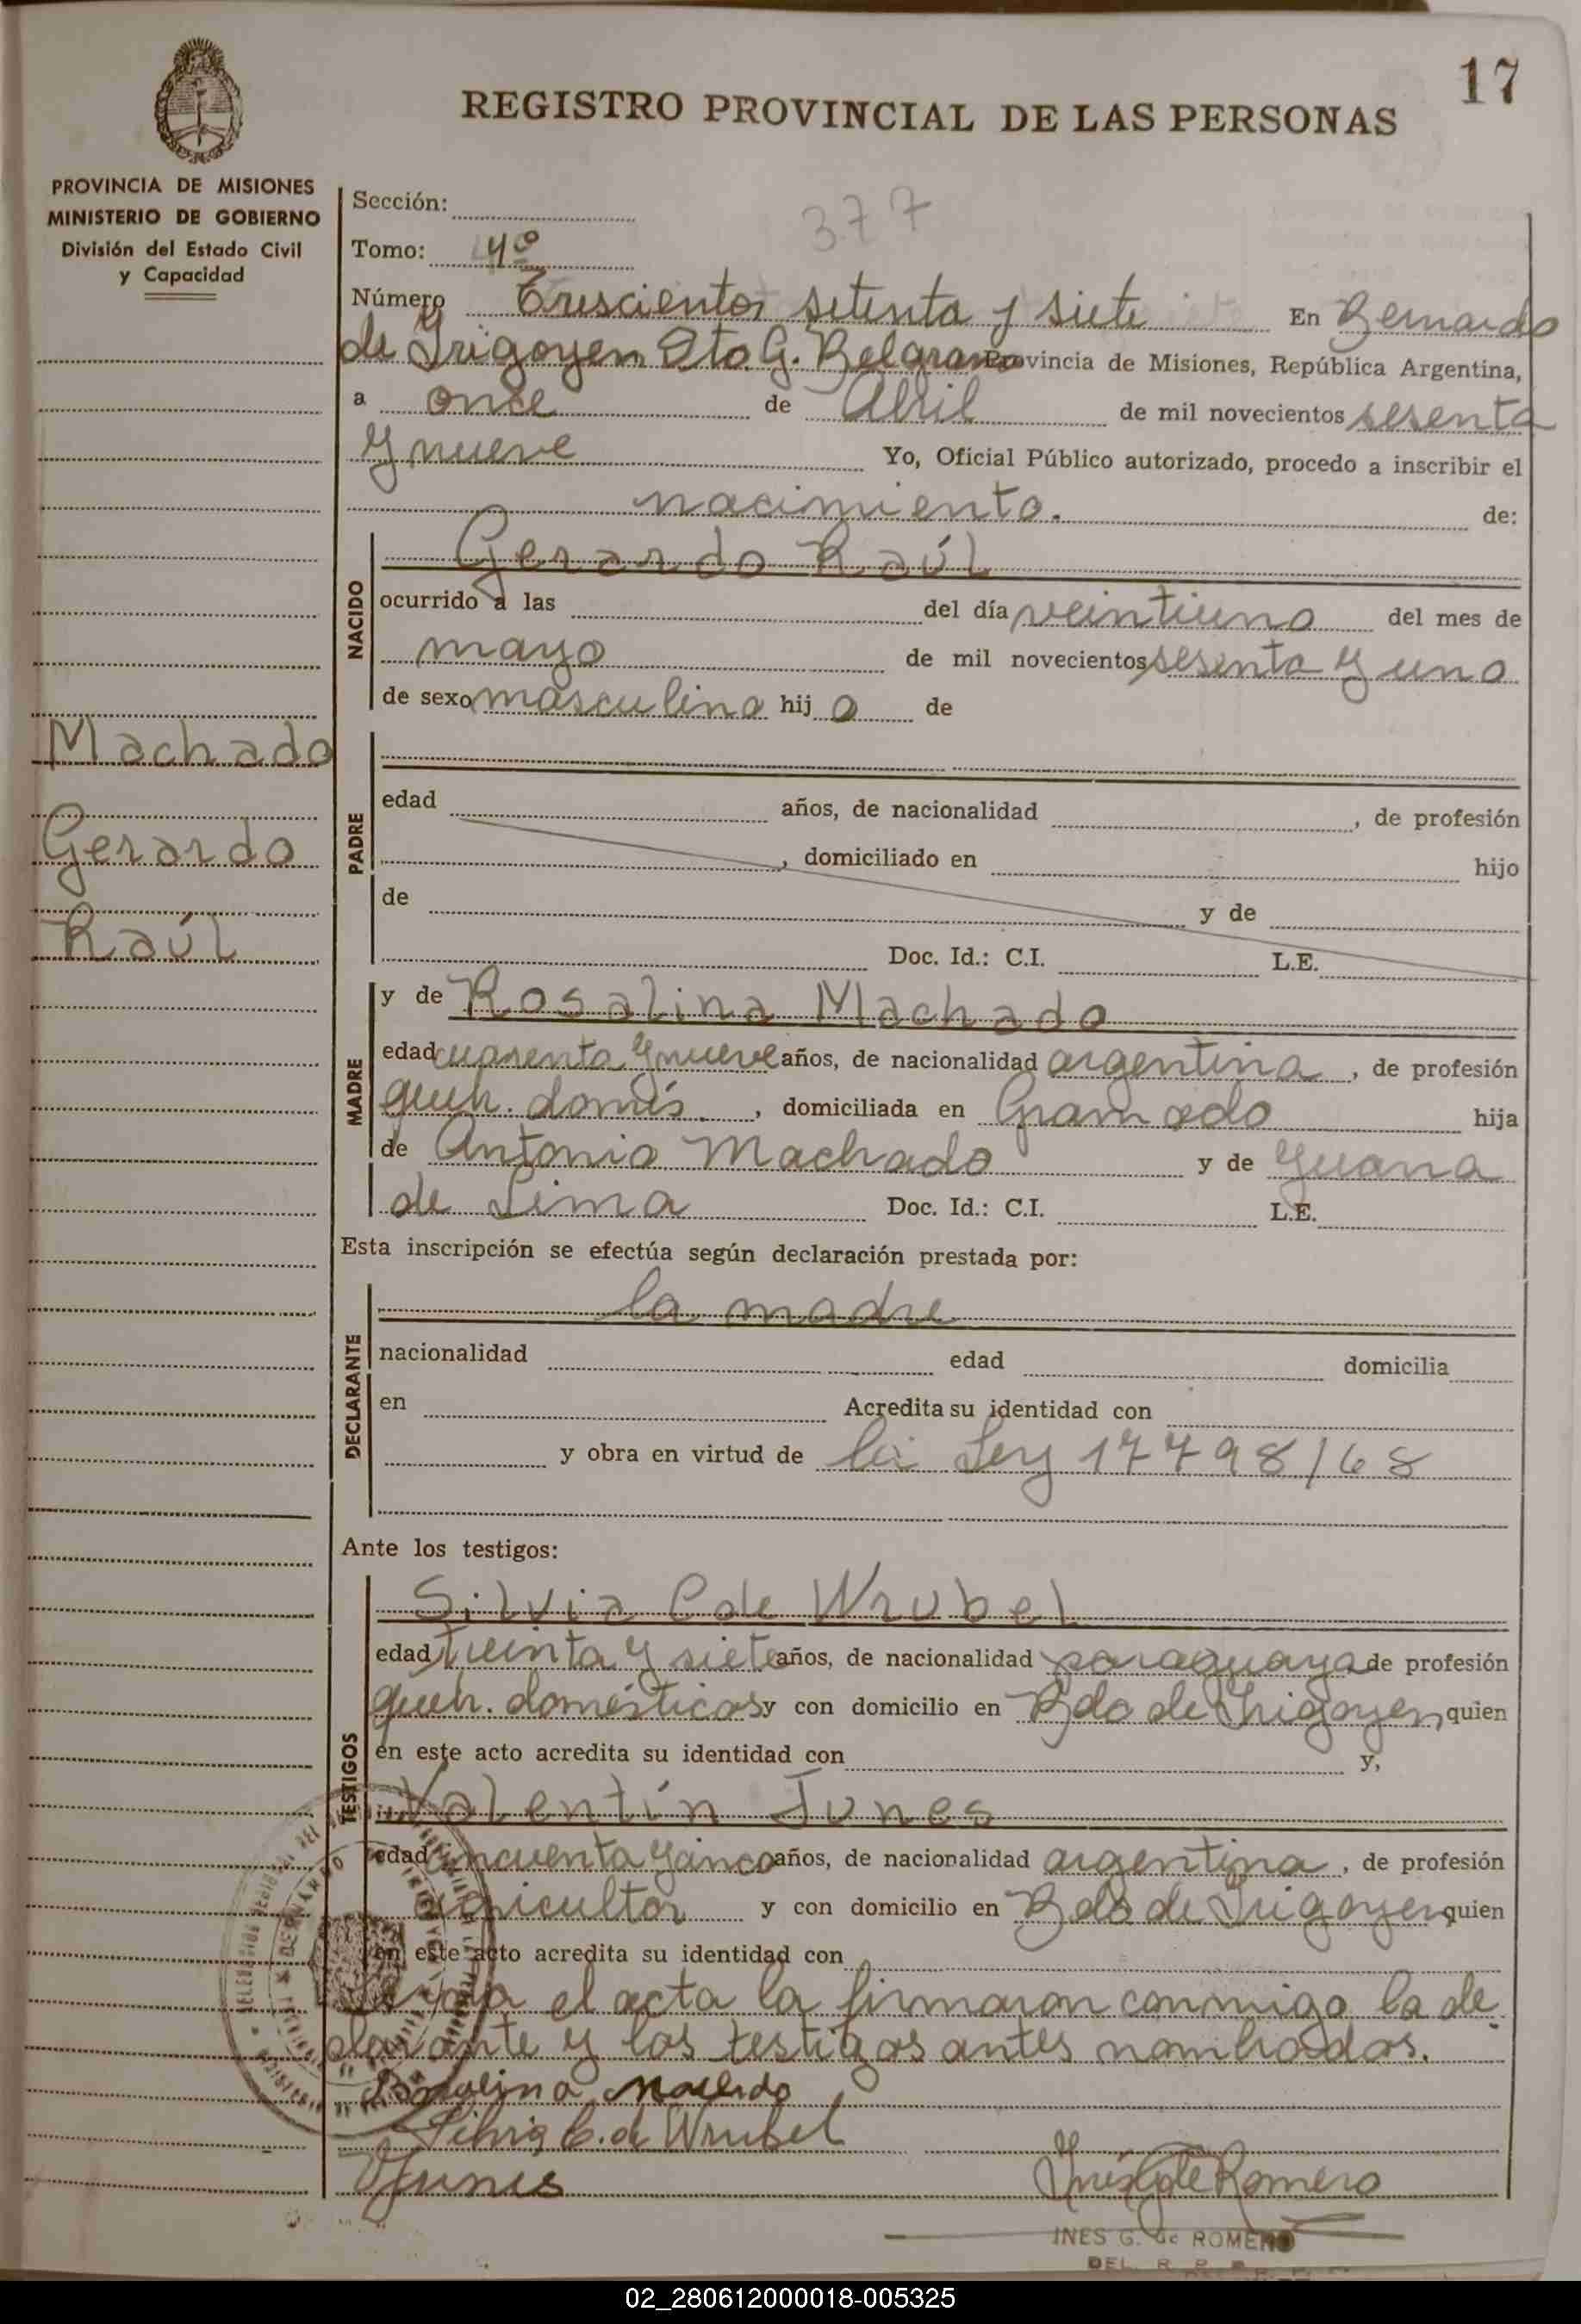 17
REGISTRO PROVINCIAL DE LAS PERSONAS
PROVINCIA DE MISIONES
MINISTERIO DE GOBIERNO
División del Estado Civil
y Capacidad
Sección:
377
Tomo: 4º
Número Trescientos setenta y siete En Bernardo
de Irigoyen Dto. G. Belgrano Provincia de Misiones, República Argentina,
a once de Abril de mil novecientos sesenta
y nueve Yo, Oficial Público autorizado, procedo a inscribir el
nacimiento. de:
NACIDO
Gerardo Raúl
ocurrido a las del día veintiuno del mes de
mayo de mil novecientos sesenta y uno
de sexo masculino hijo de
Machado
Gerardo
Raúl
PADRE
edad años, de nacionalidad , de profesión
, domiciliado en hijo
de y de
Doc. Id.: C.I. L.E.
MADRE
y de Rosalina Machado
edad cuarenta y nueve años, de nacionalidad argentina , de profesión
queh. domés. , domiciliada en Gramado hija
de Antonio Machado y de Yuana
de Lima Doc. Id.: C.I. L.E.
Esta inscripción se efectúa según declaración prestada por:
DECLARANTE
la madre
nacionalidad edad domicilia
en Acredita su identidad con
y obra en virtud de la Ley 17798/68
Ante los testigos:
TESTIGOS
Silvia C de Wrubel
edad treinta y siete años, de nacionalidad paraguaya de profesión
queh. domésticos y con domicilio en Bdo de Irigoyen, quien
en este acto acredita su identidad con y,
Valentín Junes
edad cincuenta y cinco años, de nacionalidad argentina , de profesión
agricultor y con domicilio en Bdo de Irigoyen quien
en este acto acredita su identidad con
el acta la firmaron conmigo la de
clarante y los testigos antes nombrados.
Silvia C. de Wrubel
Yunes
Inés G de Romero
INES G. de ROMERO
DEL. R. P. P.
02_280612000018-005325